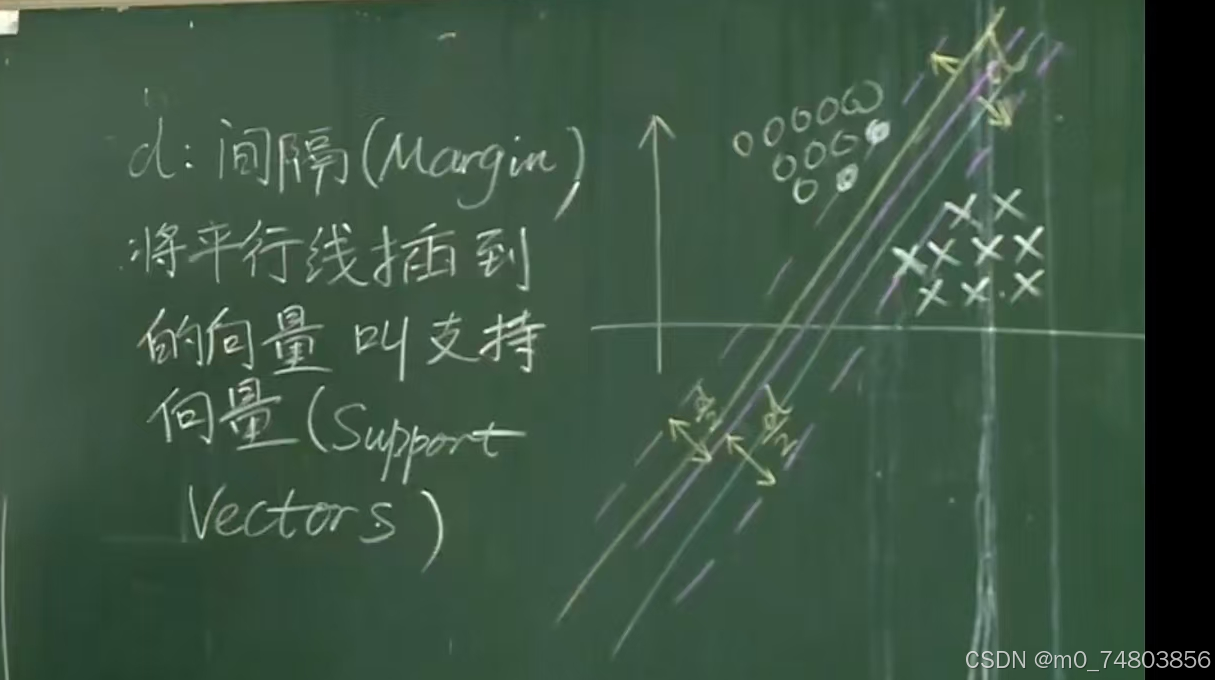 d: 间隔(Margin)
将平行线插到
的向量叫支持
向量(Support
Vectors)
d
d/2
d/2
CSDN @m0_74803856